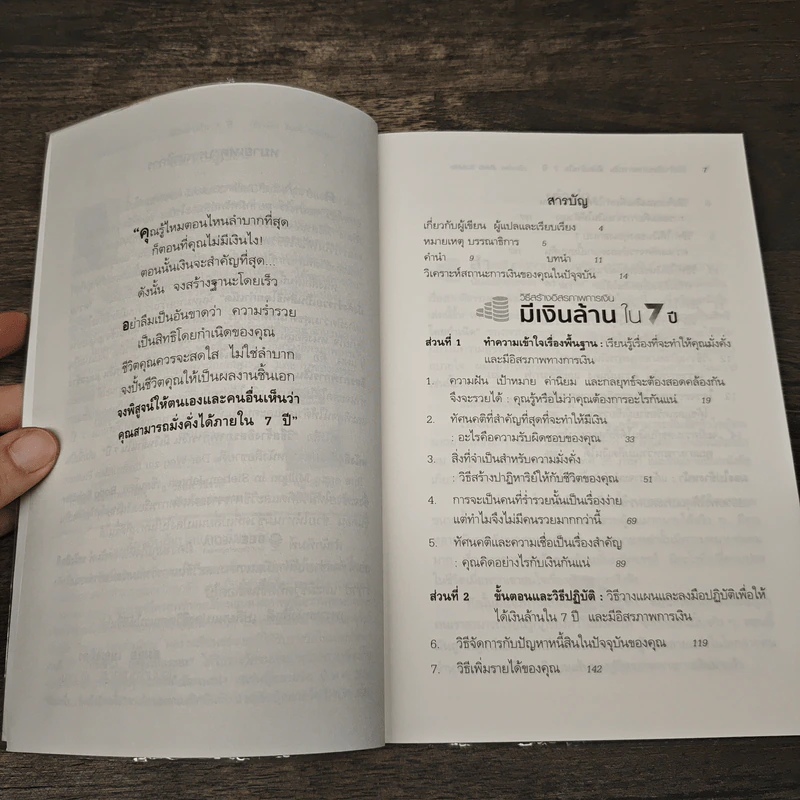 “คุณรู้ไหมตอนไหนลำบากที่สุด
ก็ตอนที่คุณไม่มีเงินไง!
ตอนนั้นเงินจะสำคัญที่สุด...
ดังนั้น จงสร้างฐานะโดยเร็ว
อย่าลืมเป็นอันขาดว่า ความร่ำรวย
เป็นสิทธิโดยกำเนิดของคุณ
ชีวิตคุณควรจะสดใส ไม่ใช่ลำบาก
จงปั้นชีวิตคุณให้เป็นผลงานชิ้นเอก
จงพิสูจน์ให้ตนเองและคนอื่นเห็นว่า
คุณสามารถมั่งคั่งได้ภายใน 7 ปี”
7
สารบัญ
เกี่ยวกับผู้เขียน ผู้แปลและเรียบเรียง 4
หมายเหตุ บรรณาธิการ 5
คำนำ 9 บทนำ 11
วิเคราะห์สถานะการเงินของคุณในปัจจุบัน 14
วิธีสร้างอิสรภาพการเงิน
มีเงินล้าน ใน 7 ปี
ส่วนที่ 1 ทำความเข้าใจเรื่องพื้นฐาน : เรียนรู้เรื่องที่จะทำให้คุณมั่งคั่ง
และมีอิสรภาพทางการเงิน
1. ความฝัน เป้าหมาย ค่านิยม และกลยุทธ์จะต้องสอดคล้องกัน
จึงจะรวยได้ : คุณรู้หรือไม่ว่าคุณต้องการอะไรกันแน่ 19
2. ทัศนคติที่สำคัญที่สุดที่จะทำให้มีเงิน
: อะไรคือความรับผิดชอบของคุณ 33
3. สิ่งที่จำเป็นสำหรับความมั่งคั่ง
: วิธีสร้างปาฏิหาริย์ให้กับชีวิตของคุณ 51
4. การจะเป็นคนที่ร่ำรวยนั้นเป็นเรื่องง่าย
แต่ทำไมจึงไม่มีคนรวยมากกว่านี้ 69
5. ทัศนคติและความเชื่อเป็นเรื่องสำคัญ
: คุณคิดอย่างไรกับเงินกันแน่ 89
ส่วนที่ 2 ขั้นตอนและวิธีปฏิบัติ : วิธีวางแผนและลงมือปฏิบัติเพื่อให้
ได้เงินล้านใน 7 ปี และมีอิสรภาพการเงิน
6. วิธีจัดการกับปัญหาหนี้สินในปัจจุบันของคุณ 119
7. วิธีเพิ่มรายได้ของคุณ 142